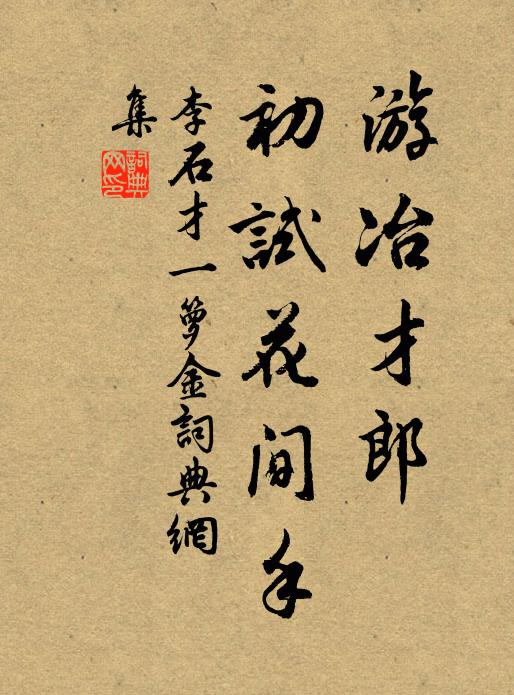 游冶才郎
初試花間手
李石才一箩金詞典網
集
詞典網印